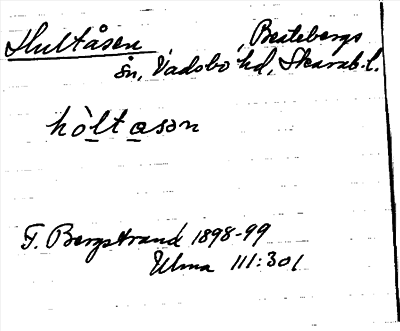 Hultåsen, Beatebergs
sn, Vadsbo hd, Skarab. l.
hòltasən
T. Bergstrand 1898-99
Ulma 111:301